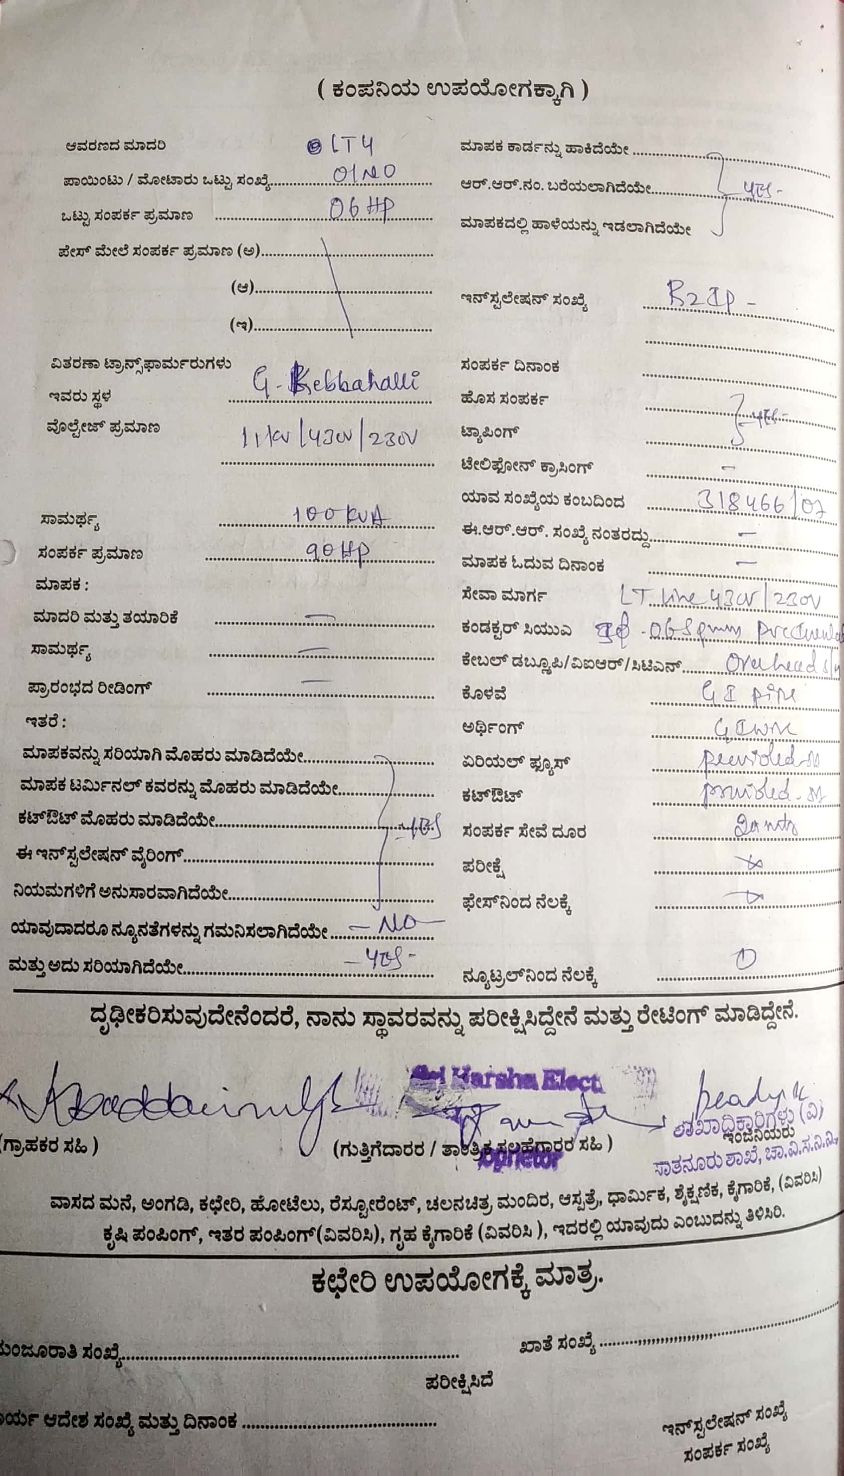 ( ಕಂಪನಿಯ ಉಪಯೋಗಕ್ಕಾಗಿ )
ಆವರಣದ ಮಾದರಿ LT4
ಪಾಯಿಂಟು / ಮೋಟಾರು ಒಟ್ಟು ಸಂಖ್ಯೆ 01 NO
ಒಟ್ಟು ಸಂಪರ್ಕ ಪ್ರಮಾಣ 06 HP
ಪೇಸ್ ಮೇಲೆ ಸಂಪರ್ಕ ಪ್ರಮಾಣ (ಅ)
(ಆ)
(ಇ)
ವಿತರಣಾ ಟ್ರಾನ್ಸ್‌ಫಾರ್ಮರುಗಳು
ಇವರು ಸ್ಥಳ G. Kebbahalli
ವೊಲ್ಟೇಜ್ ಪ್ರಮಾಣ 11KV/430V/230V
ಸಾಮರ್ಥ್ಯ 100 KVA
ಸಂಪರ್ಕ ಪ್ರಮಾಣ 90 HP
ಮಾಪಕ :
ಮಾದರಿ ಮತ್ತು ತಯಾರಿಕೆ —
ಸಾಮರ್ಥ್ಯ —
ಪ್ರಾರಂಭದ ರೀಡಿಂಗ್ —
ಇತರೆ :
ಮಾಪಕವನ್ನು ಸರಿಯಾಗಿ ಮೊಹರು ಮಾಡಿದೆಯೇ
ಮಾಪಕ ಟರ್ಮಿನಲ್ ಕವರನ್ನು ಮೊಹರು ಮಾಡಿದೆಯೇ
ಕಟ್‌ಔಟ್ ಮೊಹರು ಮಾಡಿದೆಯೇ yes
ಈ ಇನ್‌ಸ್ಪಲೇಷನ್ ವೈರಿಂಗ್
ನಿಯಮಗಳಿಗೆ ಅನುಸಾರವಾಗಿದೆಯೇ
ಯಾವುದಾದರೂ ನ್ಯೂನತೆಗಳನ್ನು ಗಮನಿಸಲಾಗಿದೆಯೇ - NO -
ಮತ್ತು ಅದು ಸರಿಯಾಗಿದೆಯೇ - yes -
ಮಾಪಕ ಕಾರ್ಡನ್ನು ಹಾಕಿದೆಯೇ
ಆರ್.ಆರ್.ನಂ. ಬರೆಯಲಾಗಿದೆಯೇ yes -
ಮಾಪಕದಲ್ಲಿ ಹಾಳೆಯನ್ನು ಇಡಲಾಗಿದೆಯೇ
ಇನ್‌ಸ್ಪಲೇಷನ್ ಸಂಖ್ಯೆ
ಸಂಪರ್ಕ ದಿನಾಂಕ
ಹೊಸ ಸಂಪರ್ಕ yes -
ಟ್ಯಾಪಿಂಗ್
ಟೇಲಿಫೋನ್ ಕ್ರಾಸಿಂಗ್ —
ಯಾವ ಸಂಖ್ಯೆಯ ಕಂಬದಿಂದ 318466/07
ಈ.ಆರ್.ಆರ್. ಸಂಖ್ಯೆ ನಂತರದ್ದು —
ಮಾಪಕ ಓದುವ ದಿನಾಂಕ —
ಸೇವಾ ಮಾರ್ಗ LT line 430V/230V
ಕಂಡಕ್ಟರ್ ಸಿಯುಎ 06 Sqmm PVC
ಕೇಬಲ್ ಡಬ್ಲೂಪಿ/ವಿಐಆರ್/ಸಿಟಿಎಸ್ Overhead
ಕೊಳವೆ GI pipe
ಅರ್ಥಿಂಗ್ GI wire
ಏರಿಯಲ್ ಫ್ಯೂಸ್ provided
ಕಟ್‌ಔಟ್ provided
ಸಂಪರ್ಕ ಸೇವೆ ದೂರ
ಪರೀಕ್ಷೆ
ಫೇಸ್‌ನಿಂದ ನೆಲಕ್ಕೆ
ನ್ಯೂಟ್ರಲ್‌ನಿಂದ ನೆಲಕ್ಕೆ 0
ದೃಢೀಕರಿಸುವುದೇನೆಂದರೆ, ನಾನು ಸ್ಥಾವರವನ್ನು ಪರೀಕ್ಷಿಸಿದ್ದೇನೆ ಮತ್ತು ರೇಟಿಂಗ್ ಮಾಡಿದ್ದೇನೆ.
Sri Harsha Elect
(ಗ್ರಾಹಕರ ಸಹಿ )
(ಗುತ್ತಿಗೆದಾರರ / ತಾಂತ್ರಿಕ ಸಲಹೆಗಾರರ ಸಹಿ )
oprietor
ಶಾಖಾಧಿಕಾರಿಗಳು (ವಿ)
ಇಂಜಿನಿಯರು
ಸಾತನೂರು ಶಾಖೆ, ಚಾ.ವಿ.ಸ.ನಿ.ನಿ.
ವಾಸದ ಮನೆ, ಅಂಗಡಿ, ಕಛೇರಿ, ಹೋಟೆಲು, ರೆಸ್ಟೋರೆಂಟ್, ಚಲನಚಿತ್ರ ಮಂದಿರ, ಆಸ್ಪತ್ರೆ, ಧಾರ್ಮಿಕ, ಶೈಕ್ಷಣಿಕ, ಕೈಗಾರಿಕೆ, (ವಿವರಿಸಿ)
ಕೃಷಿ ಪಂಪಿಂಗ್, ಇತರ ಪಂಪಿಂಗ್(ವಿವರಿಸಿ), ಗೃಹ ಕೈಗಾರಿಕೆ (ವಿವರಿಸಿ ), ಇದರಲ್ಲಿ ಯಾವುದು ಎಂಬುದನ್ನು ತಿಳಿಸಿರಿ.
ಕಛೇರಿ ಉಪಯೋಗಕ್ಕೆ ಮಾತ್ರ.
ಮಂಜೂರಾತಿ ಸಂಖ್ಯೆ
ಖಾತೆ ಸಂಖ್ಯೆ
ಪರೀಕ್ಷಿಸಿದೆ
ಕಾರ್ಯ ಆದೇಶ ಸಂಖ್ಯೆ ಮತ್ತು ದಿನಾಂಕ
ಇನ್‌ಸ್ಪಲೇಷನ್ ಸಂಖ್ಯೆ
ಸಂಪರ್ಕ ಸಂಖ್ಯೆ